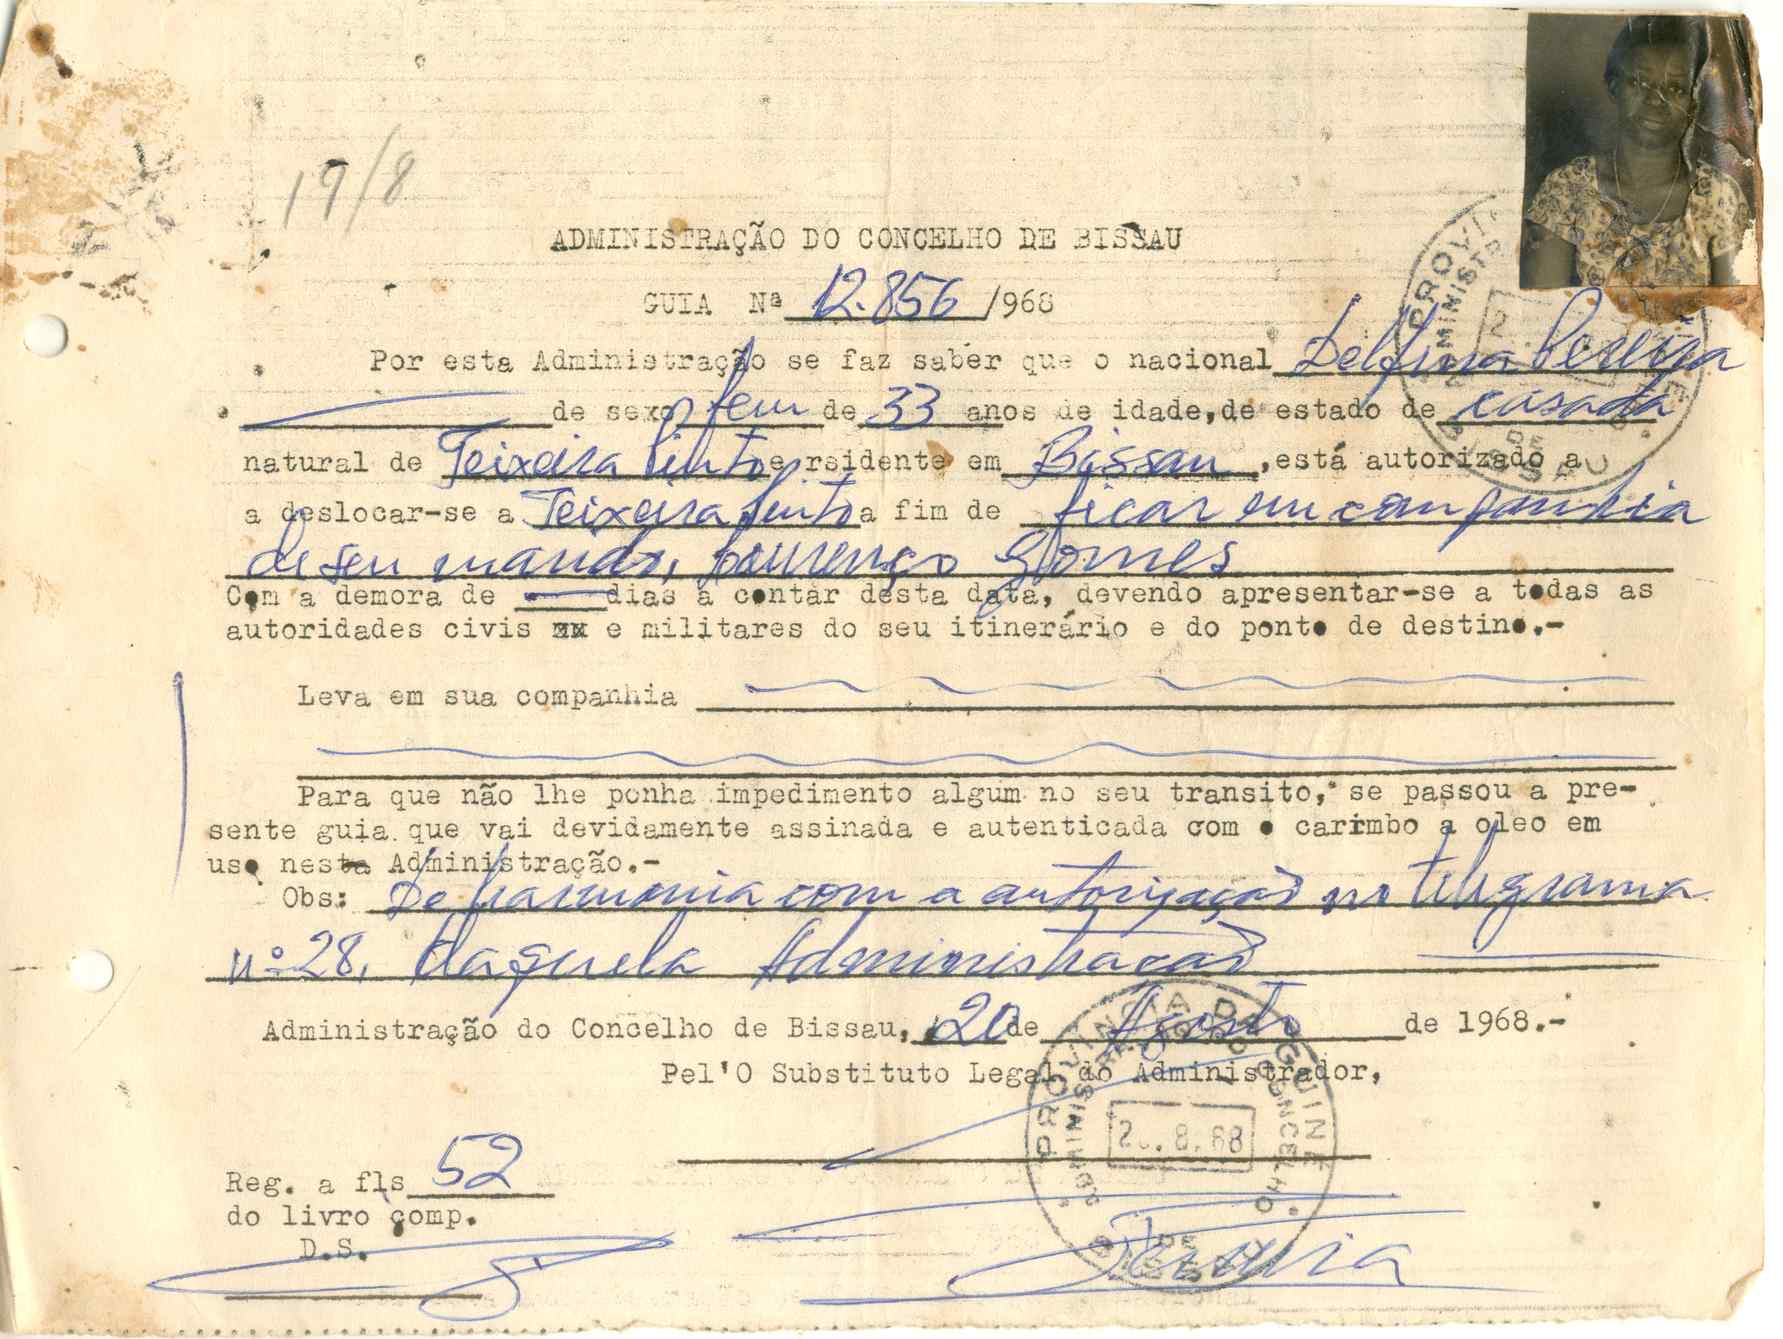 19/8
ADMINISTRAÇÃO DO CONCELHO DE BISSAU
GUIA Nª 12.856 /968
Por esta Administração se faz saber que o nacional Delfina Pereira
de sexo fem de 33 anos de idade,de estado de casada
natural de Teixeira Pinto e rsidente em Bissau ,está autorizado a
a deslocar-se a Teixeira Pinto a fim de ficar em companhia
de seu marido, Lourenço Gomes
Com a demora de dias a contar desta data, devendo apresentar-se a todas as
autoridades civis xx e militares do seu itinerário e do ponto de destino.-
Leva em sua companhia
Para que não lhe ponha impedimento algum no seu transito, se passou a pre-
sente guia que vai devidamente assinada e autenticada com o carimbo a oleo em
uso nesta Administração.-
Obs: De harmonia com a autorização no telegrama
nº 28, daquela Administração
Administração do Concelho de Bissau, 20 de Agosto de 1968.-
Pel'O Substituto Legal do Administrador,
PROVÍNCIA DA GUINÉ
ADMINISTRAÇÃO DO CONCELHO
DE BISSAU
2 .8.68
Reg. a fls 52
do livro comp.
D.S.